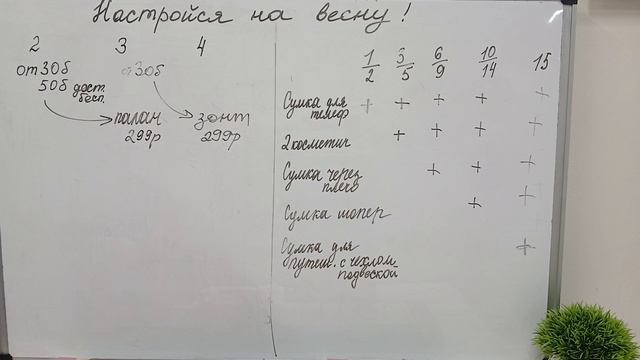 Настройся на весну!
2 3 4
от 30б от 30б
50б дост. бесп.
палан зонт
299р 299р
1/2 3/5 6/9 10/14 15
Сумка для телеф + + + + +
2 косметич + + + +
Сумка через плечо + + +
Сумка шопер + +
Сумка для путеш. с чехлом подвеской +